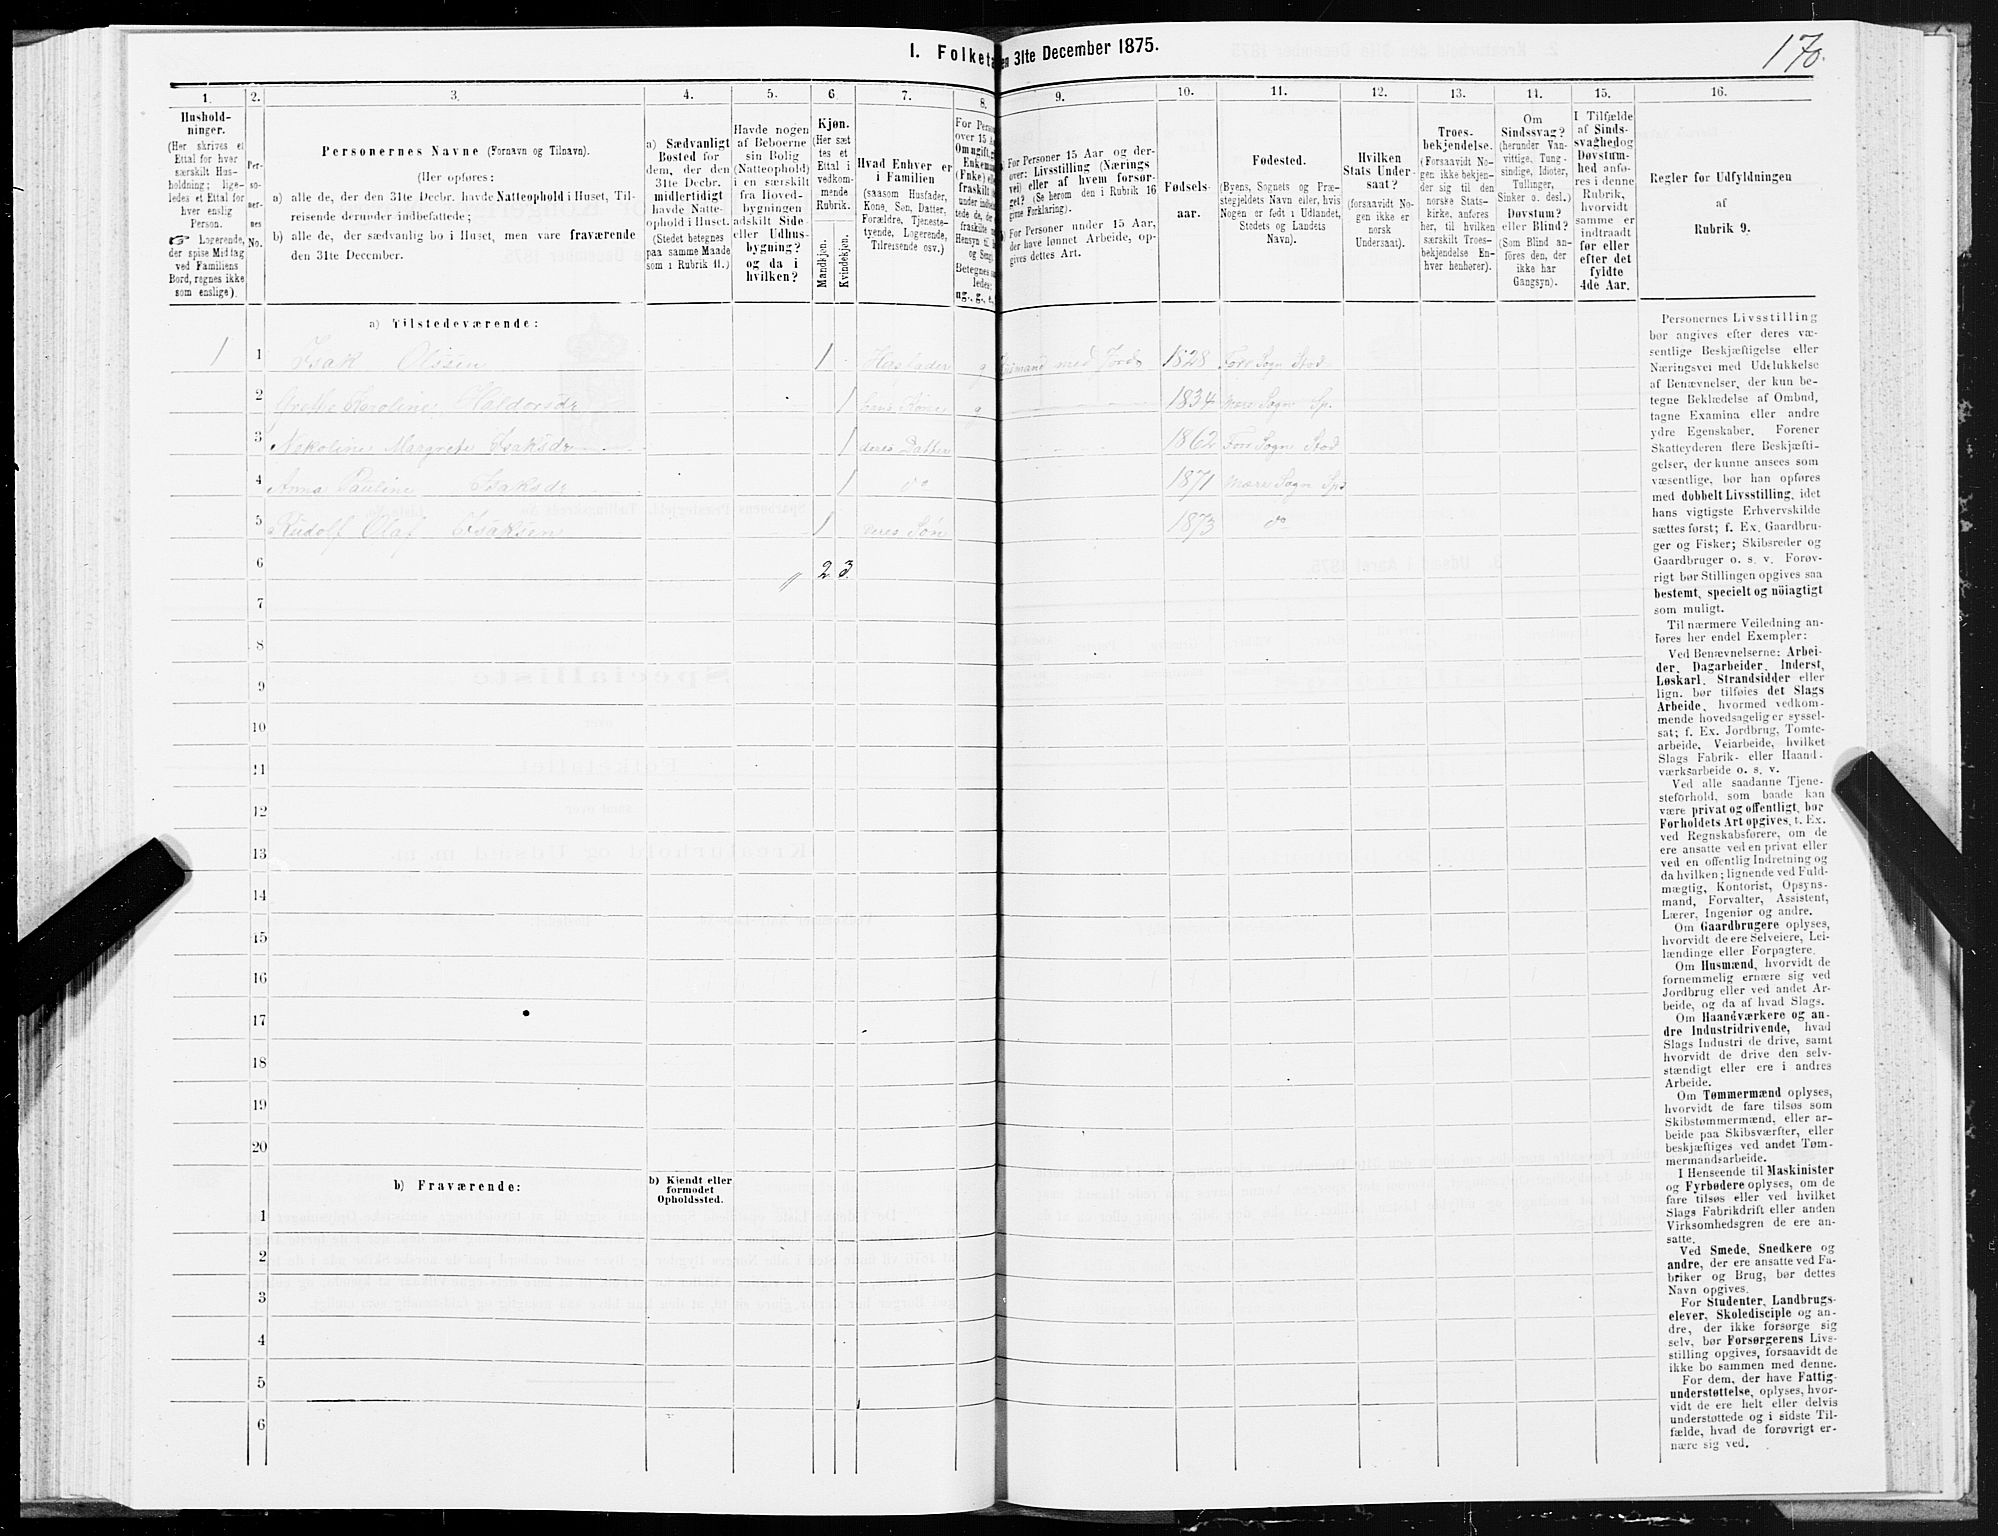 I. Folketa en 31te December 1875.
170.
1. 2. 3. 4. 5. 6 7. 8. 9. 10. 11. 12. 13. 14. 15. 16.
Hushold-
ninger.
(Her skrives et
Ettal for hver
særskilt Hus-
holdning; lige-
ledes et Ettal for
hver enslig
Person.
☞ Logerende,
der spise Middag
ved Familiens
Bord, regnes ikke
som enslige).
Per-
so-
ner-
nes
No.
Personernes Navne (Fornavn og Tilnavn).
(Her opføres:
a) alle de, der den 31te Decbr. havde Natteophold i Huset, Til-
reisende derunder indbefattede;
b) alle de, der sædvanlig bo i Huset, men vare fraværende
den 31te December.
a) Sædvanligt
Bosted for
dem, der den
31te Decbr.
midlertidigt
havde Natte-
ophold i Huset.
(Stedet betegnes
paa samme Maade
som i Rubrik 11.)
Havde nogen
af Beboerne
sin Bolig
(Natteophold)
i en særskilt
fra Hoved-
bygningen
adskilt Side-
eller Udhus-
bygning?
og da i
hvilken?
Kjøn.
(Her sæt
tes et
Ettal i
vedkom-
mende
Rubrik.
Mandkjøn.
Kvindekjøn.
Hvad Enhver er
i Familien
(saasom Husfader,
Kone, Søn, Datter,
Forældre, Tjeneste-
tyende, Logerende,
Tilreisende osv.)
For Perso
over 15 A
Om ugift, g
Enkeman
(Fnke) e
fraskilt
under indbe
tede de, de
fraskilte
Hensyn til
og Seng
Betegnes
ledes:
ug., g., e.
For Personer 15 Aar og der-
over: Livsstilling (Nærings
vei) eller af hvem forsør-
get? (Se herom den i Rubrik 16
givne Forklaring).
For Personer under 15 Aar,
der have lønnet Arbeide, op-
gives dettes Art.
Fødsels-
aar.
Fødested.
(Byens, Sognets og Præ-
stegjeldets Navn eller, hvis
Nogen er født i Udlandet,
Stedets og Landets
Navn).
Hvilken
Stats Under-
saat?
(forsaavidt No-
gen ikke er
norsk
Undersaat).
Troes-
bekjendelse.
(Forsaavidt No-
gen ikke bekjen-
der sig til den
norske Stats-
kirke, anføres
her, til hvilken
særskilt Troes-
bekjendelse En-
hver henhører).
Om
Sindssvag?
(herunder Van-
vittige, Tung-
sindige, Idioter,
Tullinger,
Sinker o. desl.)
Døvstum?
eller Blind?
(Som Blind an-
føres den, der
ikke har
Gangsyn).
I Tilfælde
af Sinds-
svaghed og
Døvstum-
hed anfø-
res i denne
Rubrik,
hvorvidt
samme er
indtraadt
før eller
efter det
fyldte
4de Aar.
Regler for Udfyldningen
af
Rubrik 9.
a) Tilstedeværende:
1 1 Isak Olssen 1 Husfader g Husmand med Jord 1828 Foss Sogn Stod
2 Grethe Karoline Haldorsdr 1 hans Kone g 1834 Mære Sogn Sp.
3 Nekoline Margrete Isaksdr 1 deres Datter 1862 Foss Sogn Stod
4 Anna Pauline Isaksdr 1 do 1871 Mære Sogn Sp
5 Rudolf Olaf Isaksen 1 deres Søn 1873 do
6 2 3.
7
8
9
10
11
12
13
14
15
16
17
18
19
20
b) Fraværende:
b) Kjendt eller
formodet
Opholdssted.
1
2
3
4
5
6
Personernes Livsstilling
bør angives efter deres væ-
sentlige Beskjæftigelse eller
Næringsvei med Udelukkelse
af Benævnelser, der kun be-
tegne Beklædelse af Ombud,
tagne Examina eller andre
ydre Egenskaber. Forener
Skatteyderen flere Beskjæfti-
gelser, der kunne ansees som
væsentlige, bør han opføres
med dobbelt Livsstilling, idet
hans vigtigste Erhvervskilde
sættes først; f. Ex. Gaardbru-
ger og Fisker; Skibsreder og
Gaardbruger o. s. v. Forøv-
rigt bør Stillingen opgives saa
bestemt, specielt og nöiagtigt
som muligt.
Til nærmere Veiledning an-
føres her endel Exempler:
Ved Benævnelserne: Arbei-
der, Dagarbeider, Inderst,
Løskarl, Strandsidder eller
lign. bør tilføies det Slags
Arbeide, hvormed vedkom-
mende hovedsagelig er syssel-
sat; f. Ex. Jordbrug, Tomte-
arbeide, Veiarbeide, hvilket
Slags Fabrik- eller Haand-
værksarbeide o. s. v.
Ved alle saadanne Tjene-
steforhold, som baade kan
være privat og offentligt, bør
Forholdets Art opgives, t. Ex.
ved Regnskabsførere, om de
ere ansatte ved en privat eller
ved en offentlig Indretning og
da hvilken; lignende ved Fuld-
mægtig, Kontorist, Opsyns-
mand, Forvalter, Assistent,
Lærer, Ingeniør og andre.
Om Gaardbrugere oplyses,
hvorvidt de ere Selveiere, Lei-
lændinge eller Forpagtere.
Om Husmænd, hvorvidt de
fornemmelig ernære sig ved
Jordbrug eller ved andet Ar-
beide, og da af hvad Slags.
Om Haandværkere og an-
dre Industridrivende, hvad
Slags Industri de drive, samt
hvorvidt de drive den selv-
stændigt eller ere i andres
Arbeide.
Om Tømmermænd oplyses,
hvorvidt de fare tilsøs som
Skibstømmermænd, eller ar-
beide paa Skibsværfter, eller
beskjæftiges ved andet Tøm-
mermandsarbeide.
I Henseende til Maskinister
og Fyrbødere oplyses, om de
fare tilsøs eller ved hvilket
Slags Fabrikdrift eller anden
Virksomhedsgren de ere an-
satte.
Ved Smede, Snedkere og
andre, der ere ansatte ved Fa-
briker og Brug, bør dettes
Navn opgives.
For Studenter, Landbrugs-
elever, Skoledisciple og an-
dre, der ikke forsørge sig
selv, bør Forsørgerens Livs-
stilling opgives, forsaavidt de
ikke bo sammen med denne.
For dem, der have Fattig-
understøttelse, oplyses, hvor-
vidt de ere helt eller delvis
understøttede og i sidste Til-
fælde, hvad de forøvrigt er-
nære sig ved.